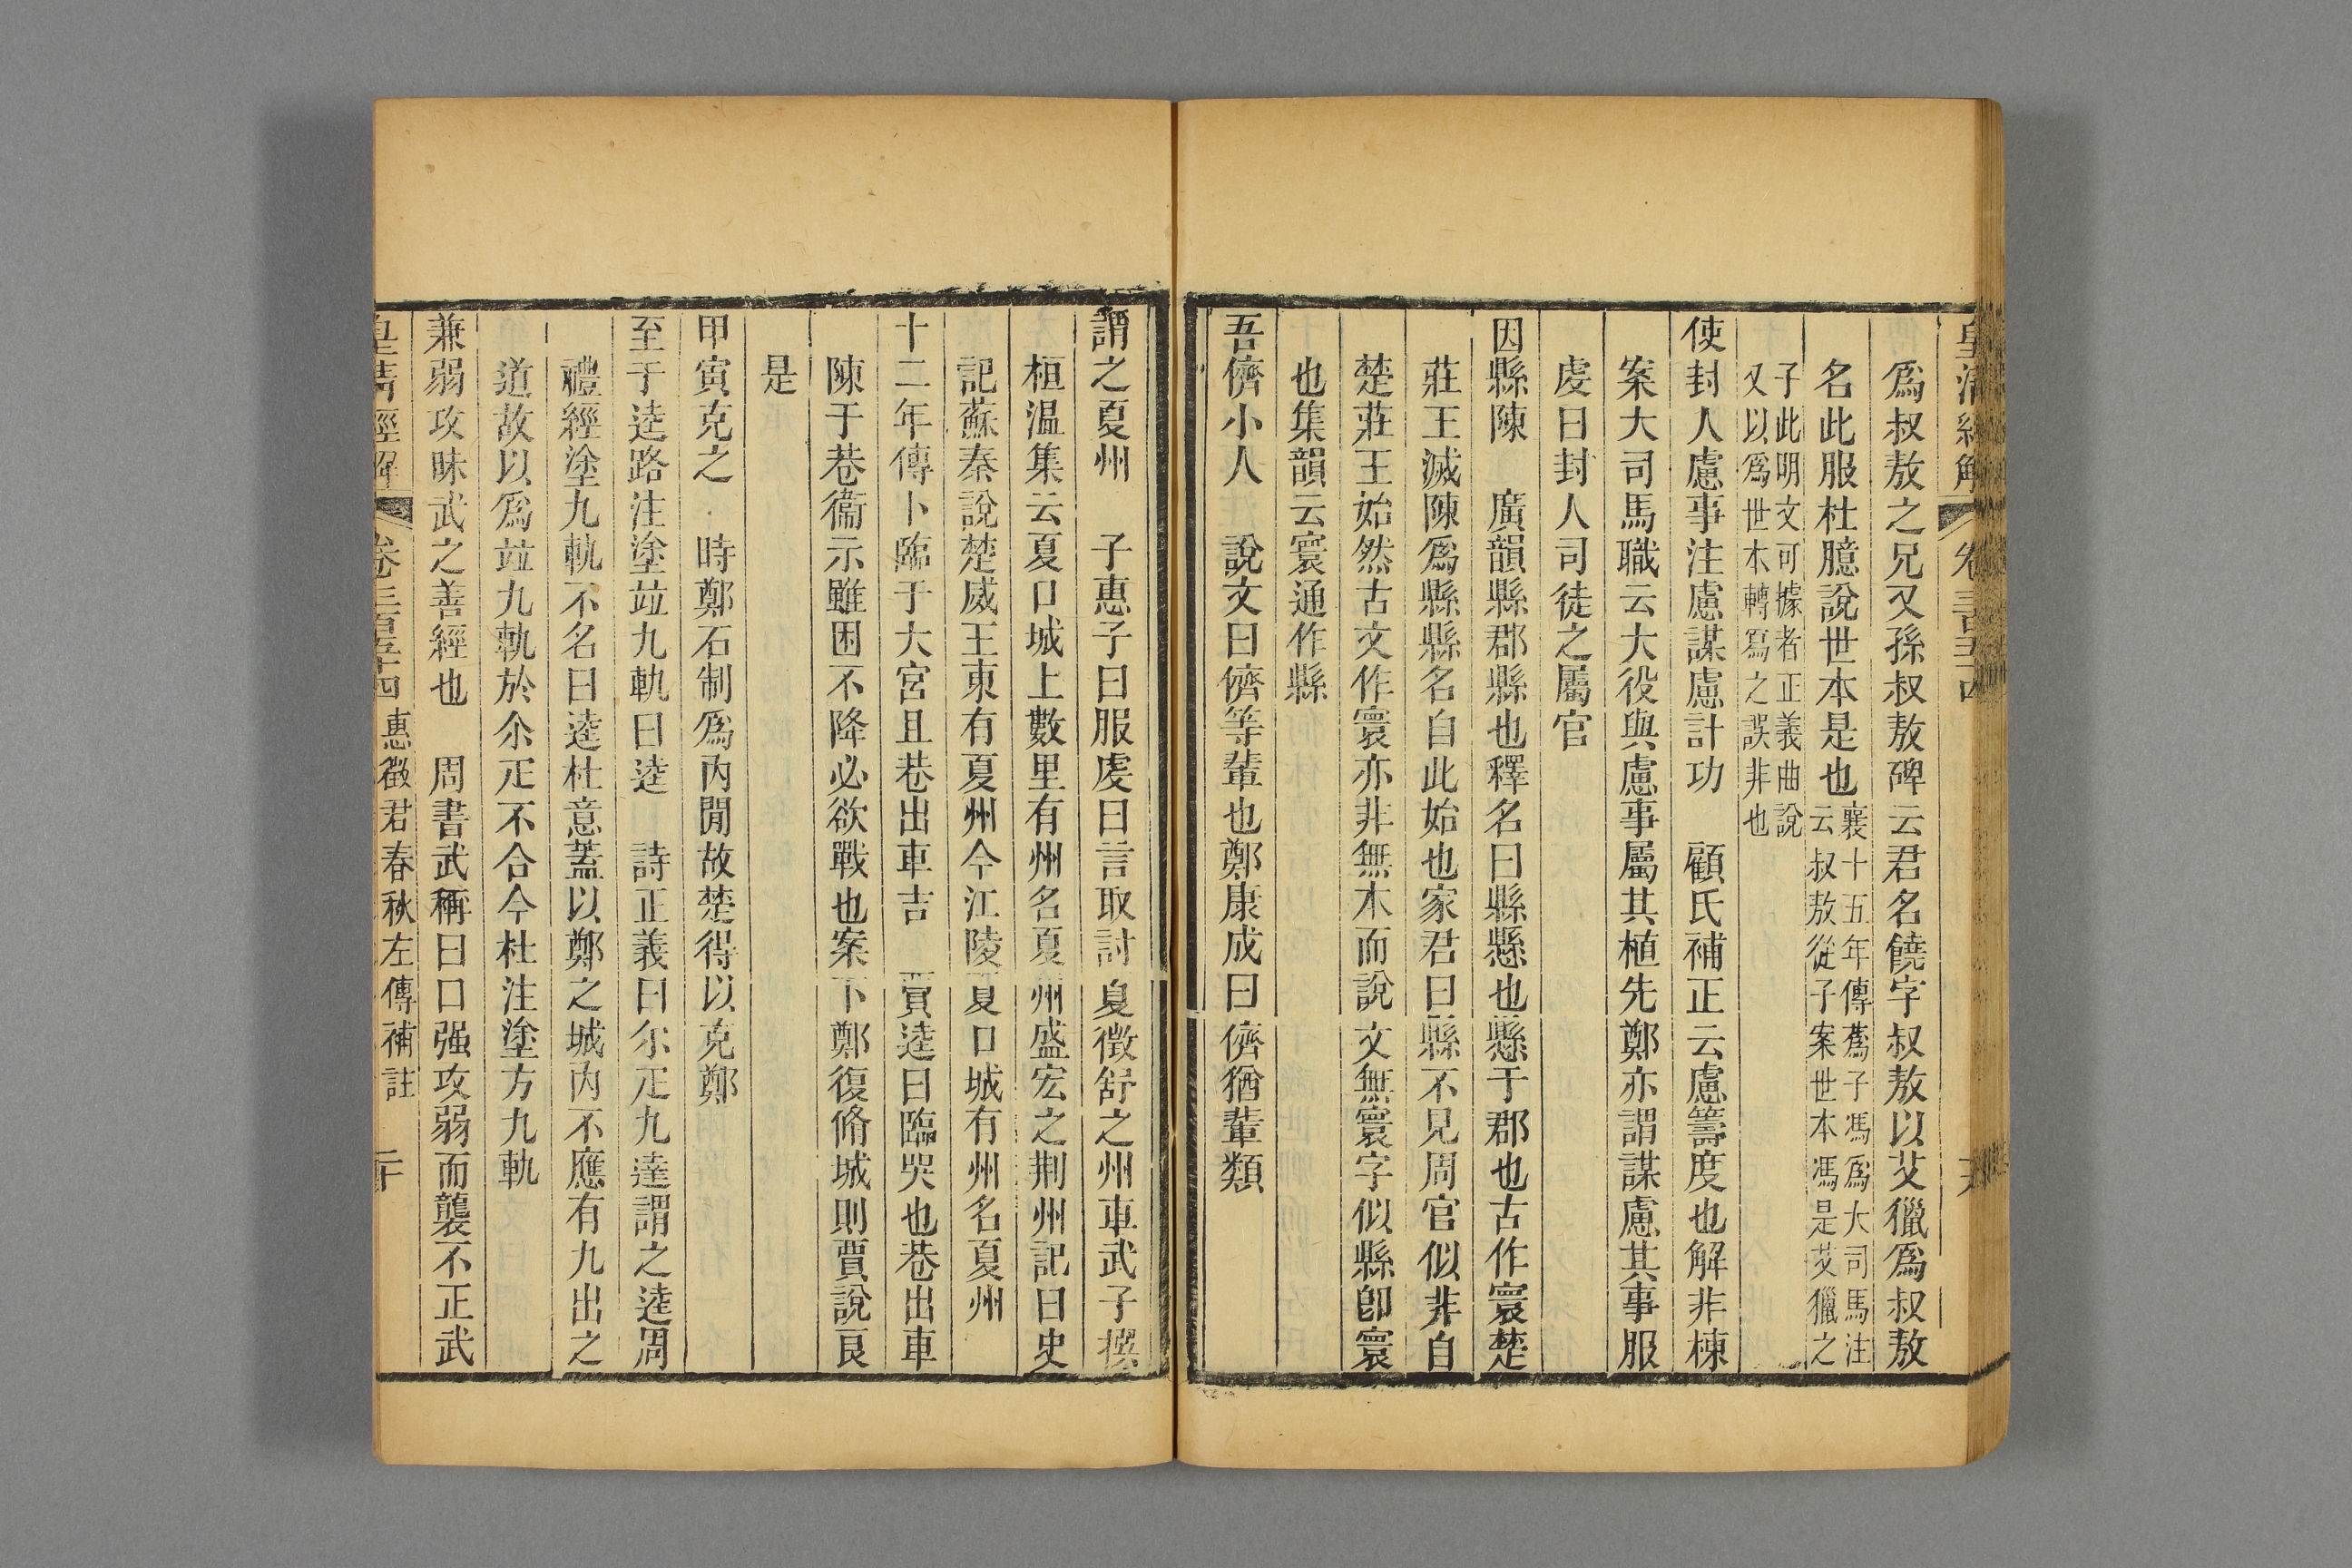 皇清經解 卷三百五十四
爲叔敖之兄又孫叔敖碑云君名饒字叔敖以艾獵爲叔敖
名此服杜臆說世本是也襄十五年傳蔿子馮爲大司馬注
云叔敖從子案世本馮是艾獵之
子此明文可據者正義曲說
又以爲世本轉寫之誤非也
使封人慮事注慮謀慮計功　顧氏補正云慮籌度也解非棟
案大司馬職云大役與慮事屬其植先鄭亦謂謀慮其事服
虔曰封人司徒之屬官
因縣陳　廣韻縣郡縣也釋名曰縣縣也縣于郡也古作寰楚
莊王滅陳爲縣縣名自此始也家君曰縣不見周官似非自
楚莊王始然古文作寰亦非無本而說文無寰字似縣卽寰
也集韻云寰通作縣
吾儕小人　說文曰儕等輩也鄭康成曰儕猶輩類
謂之夏州　子惠子曰服虔曰言取討夏徵舒之州車武子撰
桓温集云夏口城上數里有州名夏州盛宏之荆州記曰史
記蘇秦說楚威王東有夏州今江陵夏口城有州名夏州
十二年傳卜臨于大宮且巷出車吉　賈逵曰臨哭也巷出車
陳于巷衞示雖困不降必欲戰也案下鄭復脩城則賈說良
是
甲寅克之　時鄭石制爲内閒故楚得以克鄭
至于逵路注塗竝九軌曰逵　詩正義曰尒疋九達謂之逵周
禮經塗九軌不名曰逵杜意蓋以鄭之城内不應有九出之
道故以爲竝九軌於尒疋不合今杜注塗方九軌
兼弱攻昧武之善經也　周書武稱曰口强攻弱而襲不正武
皇清經解 卷三百五十四 惠徵君春秋左傳補註 二十